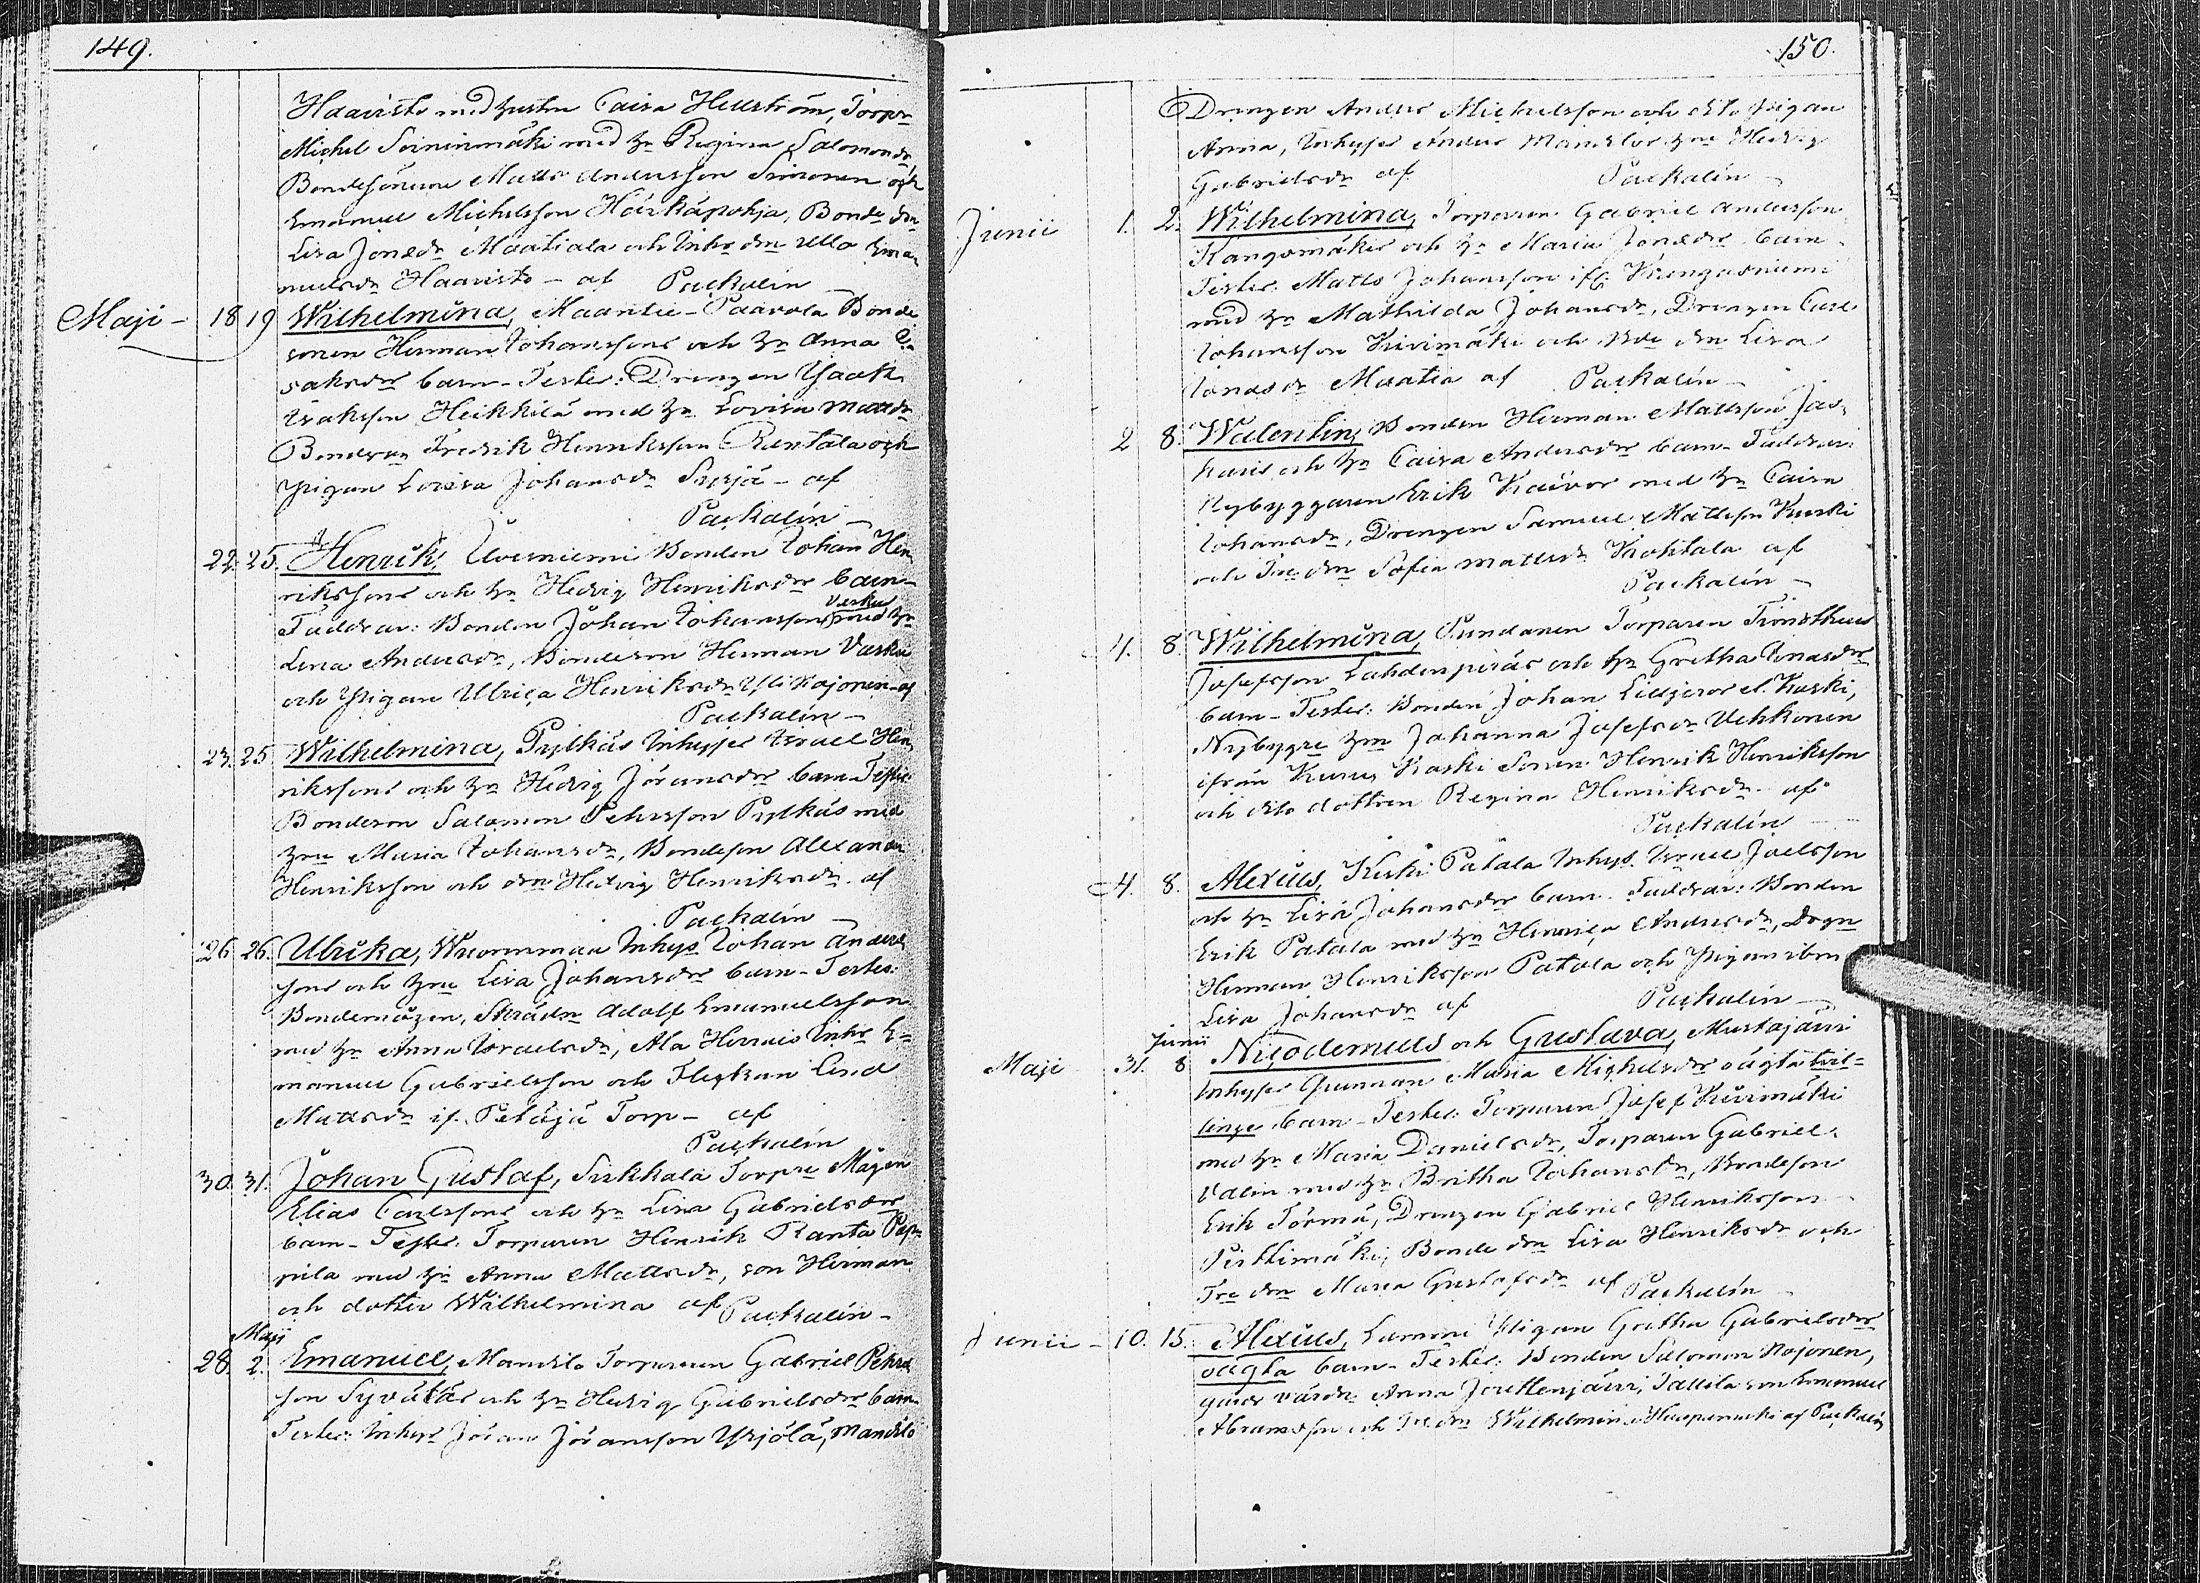 149.
Haavisto med hustru Caisa Hellström, Torpr
Michel Soininmäki med h Regina Salomonsdr
Bondesönerne Matts Andersson Simonen och
Emanuel Michelsson Härkäpohja, Bonde dn
Lisa Jonædr Maatiala och Inhs dn Ulla Ema-
nuelsdr Haavisto – af Packalén –
Maji – 18 19 Wilhelmina, Maantie-Paavola Bonde
sonen Herman Johanssons och h Anna I-
saksdrs barn – Testes: Drengen Isaak
Isaksson Heikkilä med h Lovisa Mattsdr
Bondson Fredrik Henriksson Rantala och
Pigan Lovisa Johansdr Syrjä – af
Packalén –
22. 25. Henrik, Bonden Johan Hen-
rikssons och h Hedvig Henriksdrs barn –
Faddrar: Bonden Johan Johansson Varku med h
Lena Andersdr, Bondeson Herman Varku
och Pigan Ulrica Henriksdr Yli Kojonen af
Packalén –
23. 25 Wilhelmina, Pylkäs Inhyses Israel Hen-
rikssons och h Hedvig Jöransdrs barn – Testes:
Bondeson Salomon Pehrsson Pylkäs med
hru Maria Johansdr, Bondeson Alexander
Henriksson och dn Hedvig Henriksdr af
Packalén –
26. 26. Ulrika, Wuorenmaa Inhys Johan Anders
sons och hru Lisa Johansdrs barn – Testes:
Bondemågen, Skrädr Adolf Emanuelsson
med h Anna Israelsdr, Ala Hernis Inhs E-
manuel Gabrielsson och Flickan Lisa
Mattsdr if. Petäjä Torp – af
Packalén
30. 31. Johan Gustaf, Sirkkala Torpre Mågen
Elias Carlssons och h Lisa Gabrielsdrs
barn – Testes: Torparen Henrik Ranta Pap-
pila med h Anna Mattsdr, son Herman
och dotter Wilhelmina af Packalén –
Maji
28. 2. Emanuel, Mandila Torparen Gabriel Pehrs
son Syvätäs och h Hedvig Gabrielsdrs barn
Testes: Inhys Jöran Jöransson Yrjölä, Mandila
150.
Drengen Anders Michelsson och dito Pigan
Anna, Inhyses Anders Mandelos hru Hedvig
Gabrielsdr af Packalén –
Junii 1. 2. Wilhelmina, Torparen Gabriel Andersson
Kangasmäkis och h Maria Jonædrs barn –
Testes: Matts Johansson ifr Kuengasniemi
med h Mathilda Johansdr, Drengen Carl
Johansson Kivimäki och Bde dn Lisa
Jonasdr Maatia af Packalén –
2 8. Walentin, Bonden Herman Mattsson Jas-
karis och h Caisa Andersdrs barn – Faddrar:
Nybyggaren Erik Kaivos med h Caisa
Johansdr, Drengen Samuel Mattsson Kurki
och Tre dn Sofia Mattsdr Kohtala af
Packalén –
4. 8. Wilhelmina, Sundanen Torparen Timotheus
Josefsson Lahdenperäs och h Gretha Jonasdrs
barn – Testes: Bonden Johan Liljeros el. Koski,
Nybygre hru Johanna Josefsdr Uchkonen
ifrån Kuru, Koski Sonen Henrik Henriksson
och dito dottren Regina Henriksdr – af
Packalén
4. 8. Alexius, Keski Patala Inhys. Israel Joelsson
och h Lisa Johansdrs barn. Faddrar: Bonden
Erik Patala med h Henrica Andersdr, Drgn
Herman Henriksson Patala och Pigan ibm
Lisa Johansdr af Packalén –
Junii
Maji 31. 8 Nicodemus och Gustava, Mustajärvi
Inhyses Qvinnan Maria Michelsdrs oägta tvil-
linge barn – Testes: Torparen Josef Kuivimäki
med h Maria Danielsdr, Torparen Gabriel
Valin med h Britha Johansdr, Bondeson
Erik Törmä, Drengen Gabriel Henriksson
Pirttimäki, Bonde dn Lisa Henriksdr och
Tre dn Maria Gustafsdr af Packalén
Junii – 10. 15. Alexius, Lammi Pigan Gretha Gabrielsdrs
oägta barn – Testes: Bonden Salomon Kojonen,
Anna Jouttenjärvi, Tallila son Emanuel
Abramsson och Tre dn Wilhelmina af Packalén